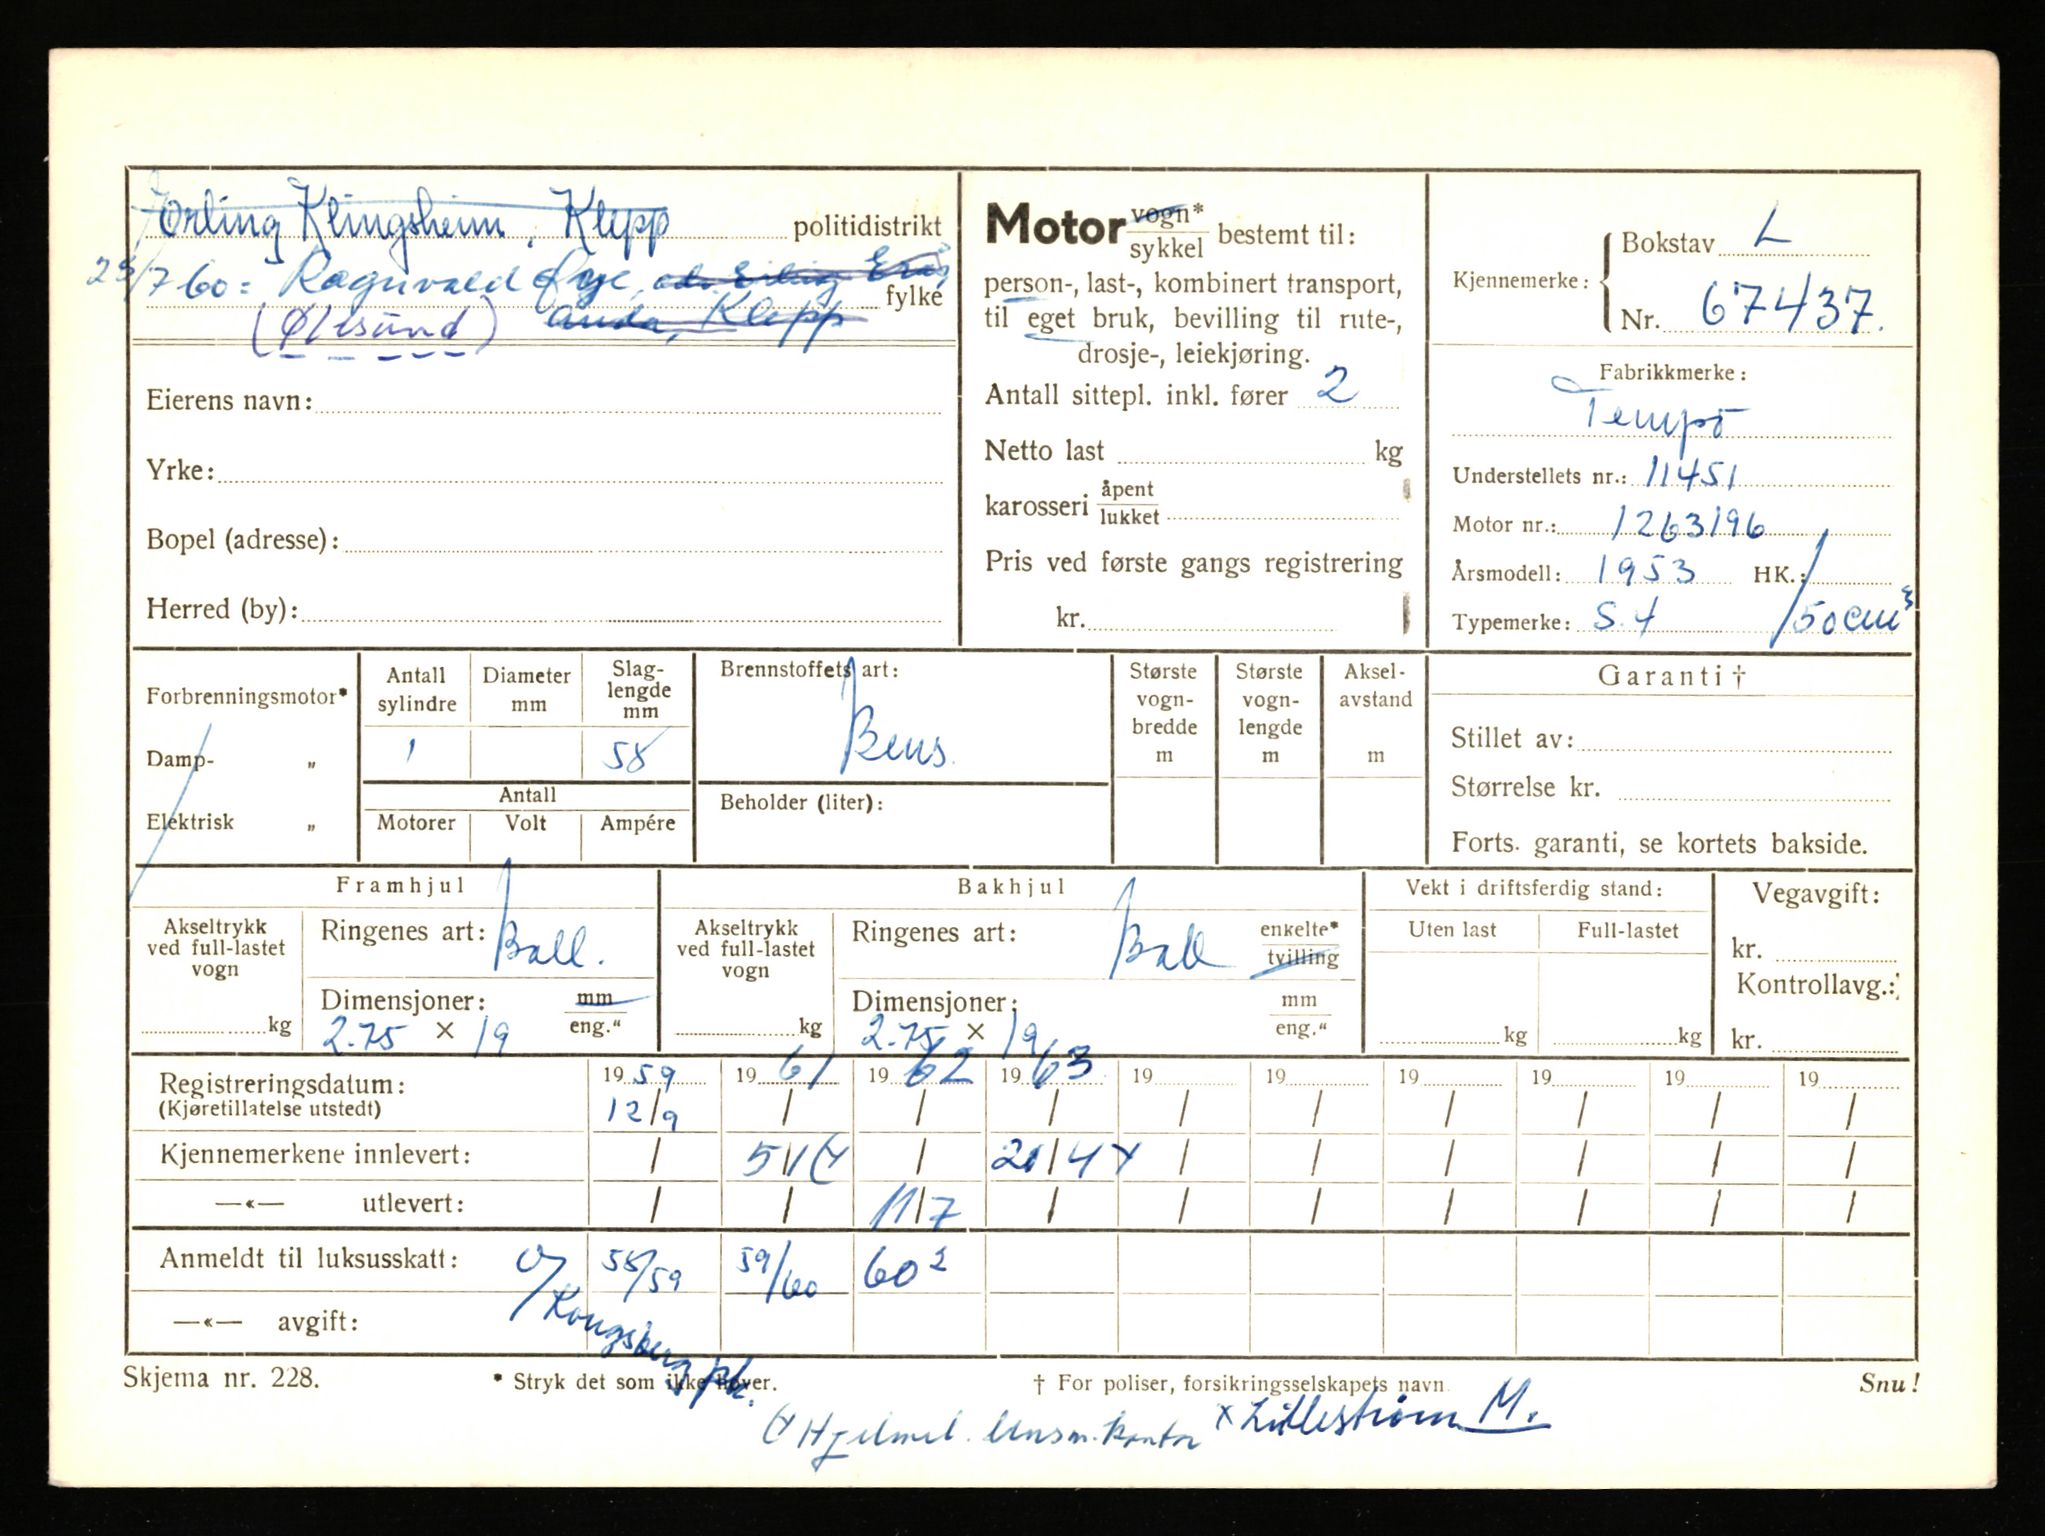 Erling Klingsheim, Klepp politidistrikt
23/7 60: Ragnvald Øye,
fylke
(Ølesund) Anda, Klepp
Eierens navn:
Yrke:
Bopel (adresse):
Herred (by):
Motor vogn* sykkel bestemt til:
person-, last-, kombinert transport,
til eget bruk, bevilling til rute-,
drosje-, leiekjøring.
Antall sittepl. inkl. fører 2
Netto last kg
karosseri åpent lukket
Pris ved første gangs registrering
kr.
Kjennemerke: Bokstav L
Nr. 67437.
Fabrikkmerke:
Tempo
Understellets nr.: 11451
Motor nr.: 1263196
Årsmodell: 1953 HK.:
Typemerke: S.4 / 50 cm³
Forbrenningsmotor*
Damp- "
Elektrisk "
Antall sylindre
1
Diameter mm
Slag-lengde mm
58
Antall
Motorer Volt Ampére
Brennstoffets art:
Bens.
Beholder (liter):
Største vogn-bredde m
Største vogn-lengde m
Aksel-avstand m
Garanti †
Stillet av:
Størrelse kr.
Forts. garanti, se kortets bakside.
Framhjul
Akseltrykk ved full-lastet vogn
kg
Ringenes art: Ball.
Dimensjoner: mm eng."
2.75 × 19
Bakhjul
Akseltrykk ved full-lastet vogn
kg
Ringenes art: Ball enkelte* tvilling
Dimensjoner: mm eng."
2.75 × 19
Vekt i driftsferdig stand:
Uten last Full-lastet
kg kg
Vegavgift:
kr.
Kontrollavg.:
kr.
Registreringsdatum: 1959 1961 1962 1963 19 19 19 19 19 19
(Kjøretillatelse utstedt) 12/9 / / / / / / / / /
Kjennemerkene innlevert: / 5/ / 21/4 x / / / / / /
—«— utlevert: / / 11/7 / / / / / / /
Anmeldt til luksusskatt: 58/59 59/60 60²
—«— avgift:
Kongsberg pk.
Skjema nr. 228. * Stryk det som ikke høver. † For poliser, forsikringsselskapets navn. Snu!
x Lillestrøm M.